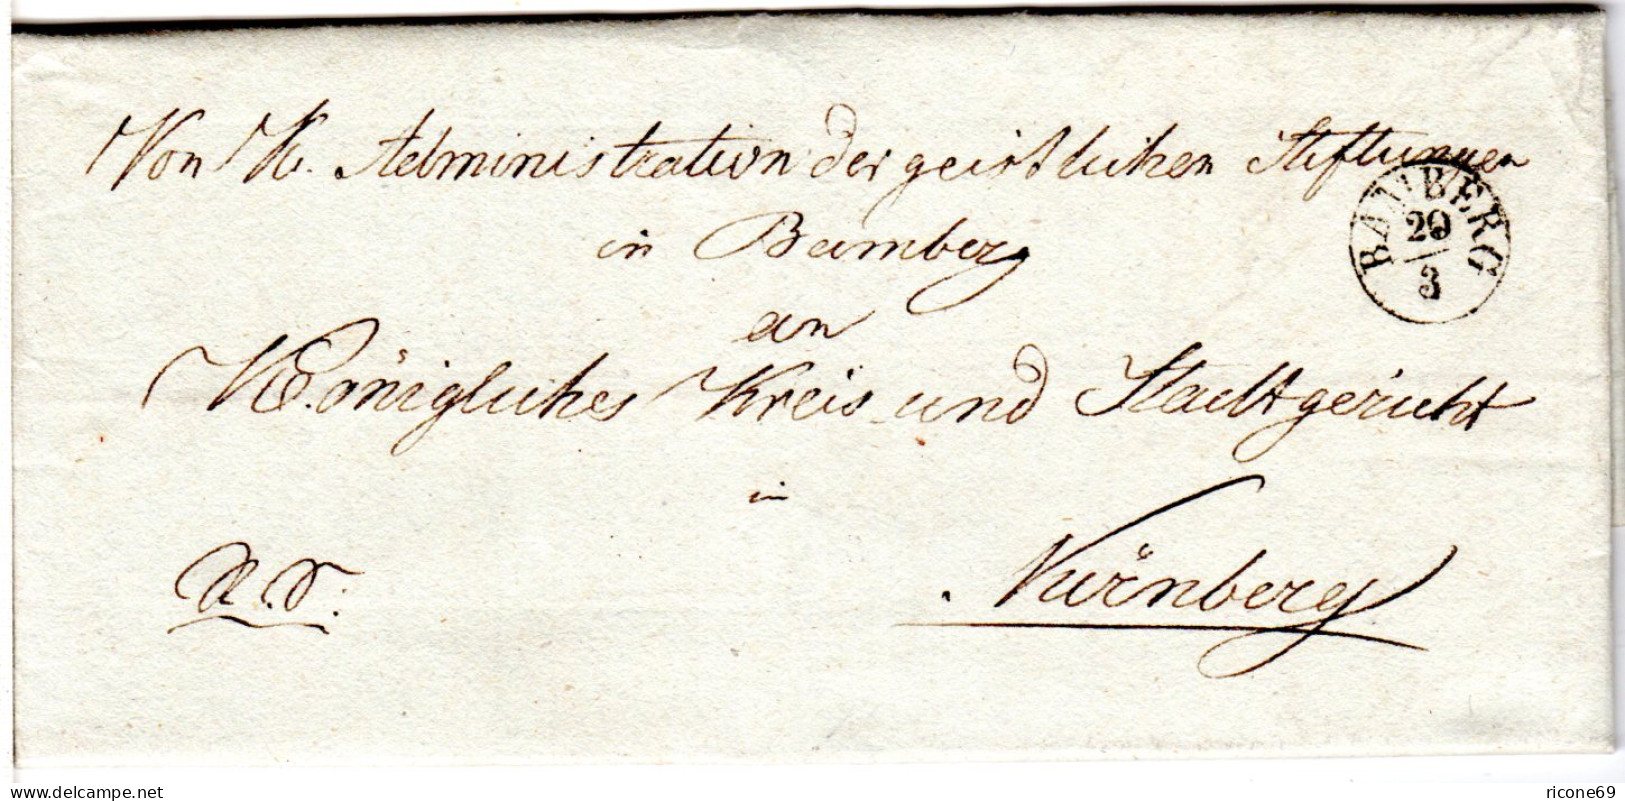 Von K. Administration der geistlichen Stiftungen
in Bamberg
an
Königliches Kreis und Stadtgericht
in
Nürnberg
R. S:
BAMBERG
20
3
www.delcampe.net
ricone69